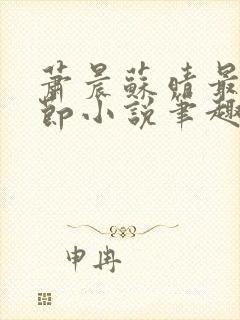 蕭晨蘇晴最
節小說筆趣
申冉